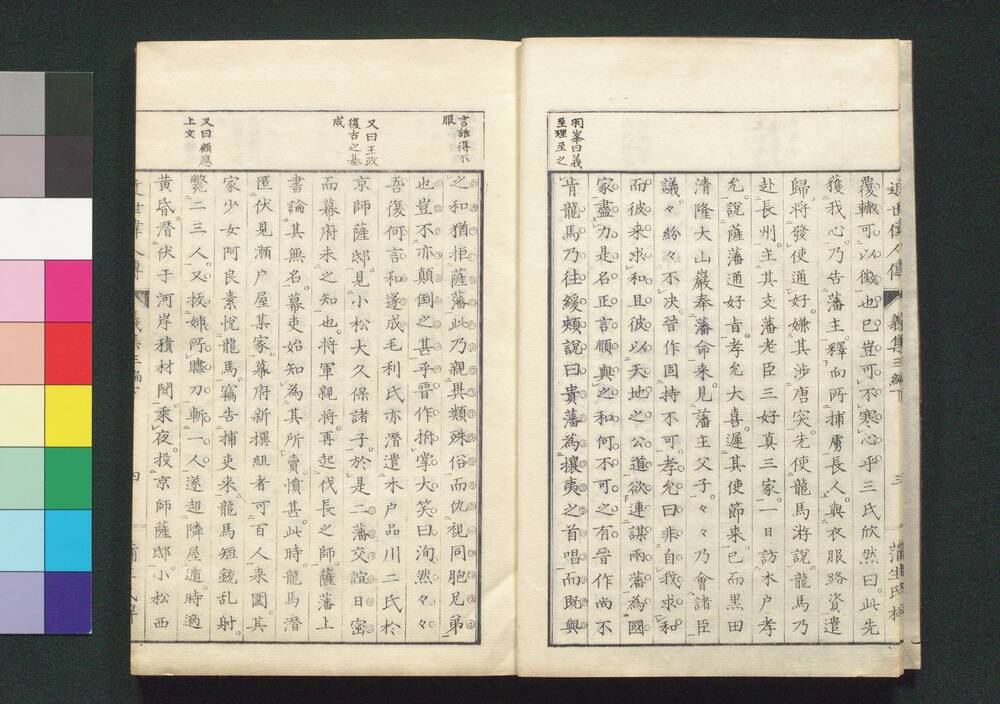 近世偉人傳
義集三編下
三
蒲生氏
羽峯曰義
至理至之
覆轍可以徵也已豈可不寒心乎三氏欣然曰此先
獲我心乃告藩主釋向所捕虜長人與衣服路資遣
歸將發使通好嫌其涉唐突先使龍馬游說龍馬乃
赴長州主其支藩老臣三好真三家一日訪木戶孝
允說薩藩通好旨孝允大喜遲其使節來已而黑田
清隆大山巖奉藩命來見藩主父子々々乃會諸臣
議々紛々不決晉作固持不可孝允曰非自我求和
而彼來求和且彼以天地之公道欲連謀兩藩為國
家盡力是名正言順與之和何不可之有晉作尚不
肯龍馬乃徃緩頰說曰貴藩為攘夷之首唱而既與
言誰得不
服
又曰王政
復古之基
成
又曰顧應
上文
之和猶拒薩藩此乃親異類殊俗而仇視同胞兄弟
也豈不亦顛倒之甚乎晉作拊掌大笑曰洵然々々
吾復何言和遂成毛利氏亦潛遣木戶品川二氏於
京師薩邸見小松大久保諸子於是二藩交誼日密
而幕府未之知也將軍親將再起伐長之師薩藩上
書論其無名幕吏始知為其所賣憤甚此時龍馬潛
匿伏見瀨戶屋某家幕府新撰組者可百人来圍其
家少女阿良素悅龍馬竊告捕吏来龍馬短銃乱射
斃二三人又拔姊所贐刀斬一人遂超隣屋遁時適
黃昏潛伏于河岸積材間乘夜投京師薩邸小松西
四